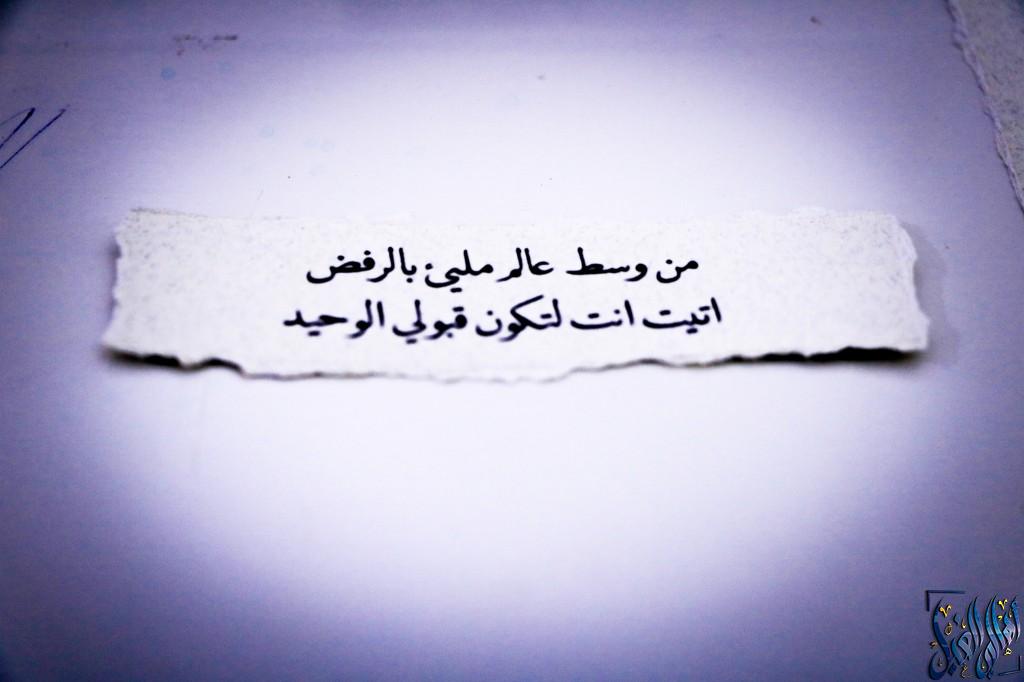 من وسط عالم مليئ بالرفض
اتيت انت لتكون قبولي الوحيد